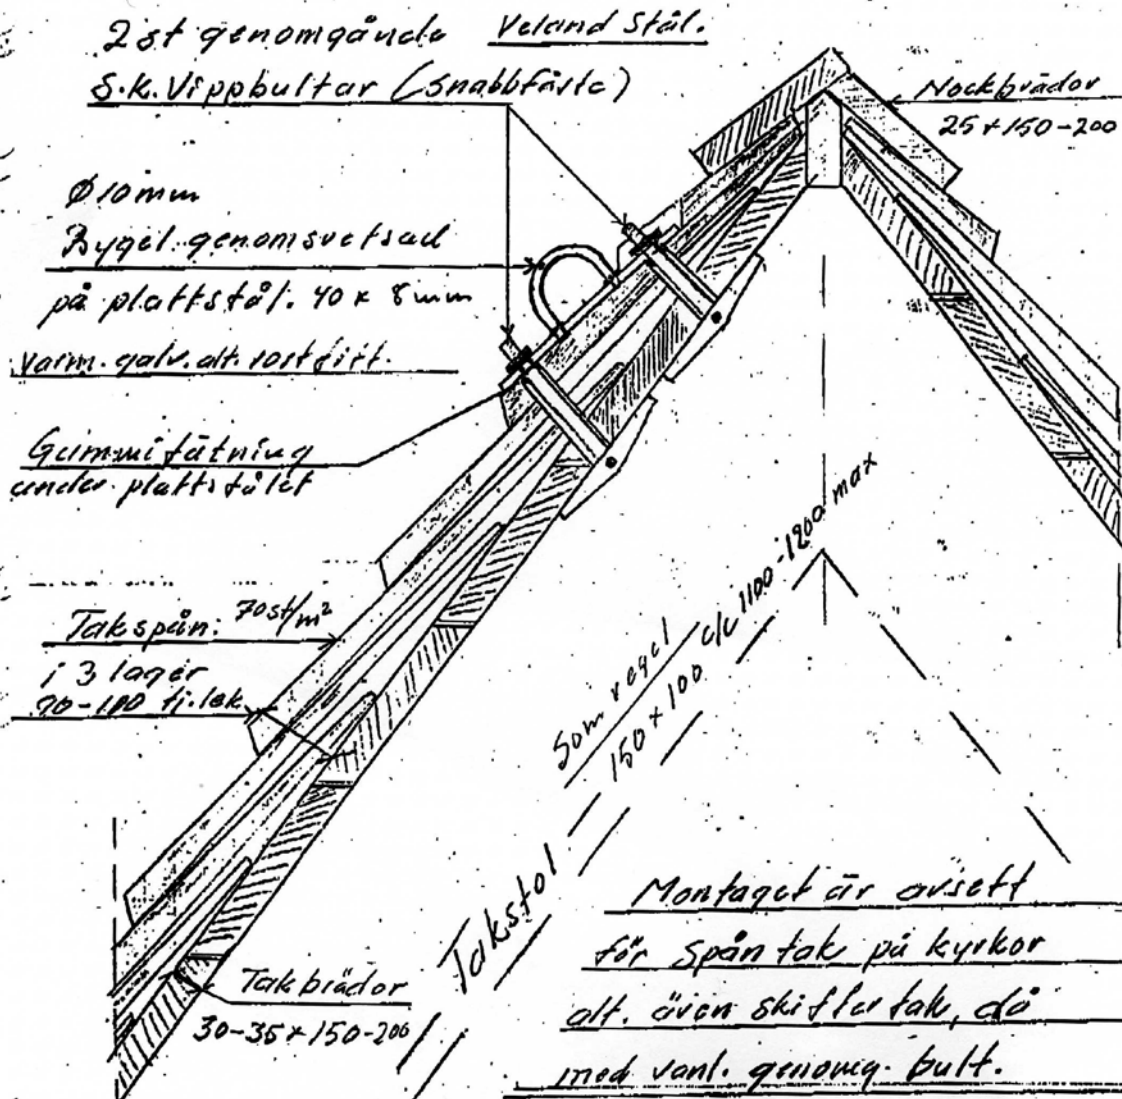 2st genomgående Veland Stål.
S.k. Vippbultar (Snabbfäste)
Nockbrädor
25 x 150-200
Ø 10mm
Bygel genomsvetsad
på plattstål. 40 x 8 mm
varm. galv. alt. rostfritt.
Gummitätning
under plattstålet
Takspån: 70st/m²
i 3 lager
90-100 tj.lek
Som regel
150 x 100 c/c 1100-1200 max
Takstol
Takbrädor
30-35 x 150-200
Montaget är avsett
för spåntak på kyrkor
alt. även skiffertak, då
med vanl. genomg. bult.